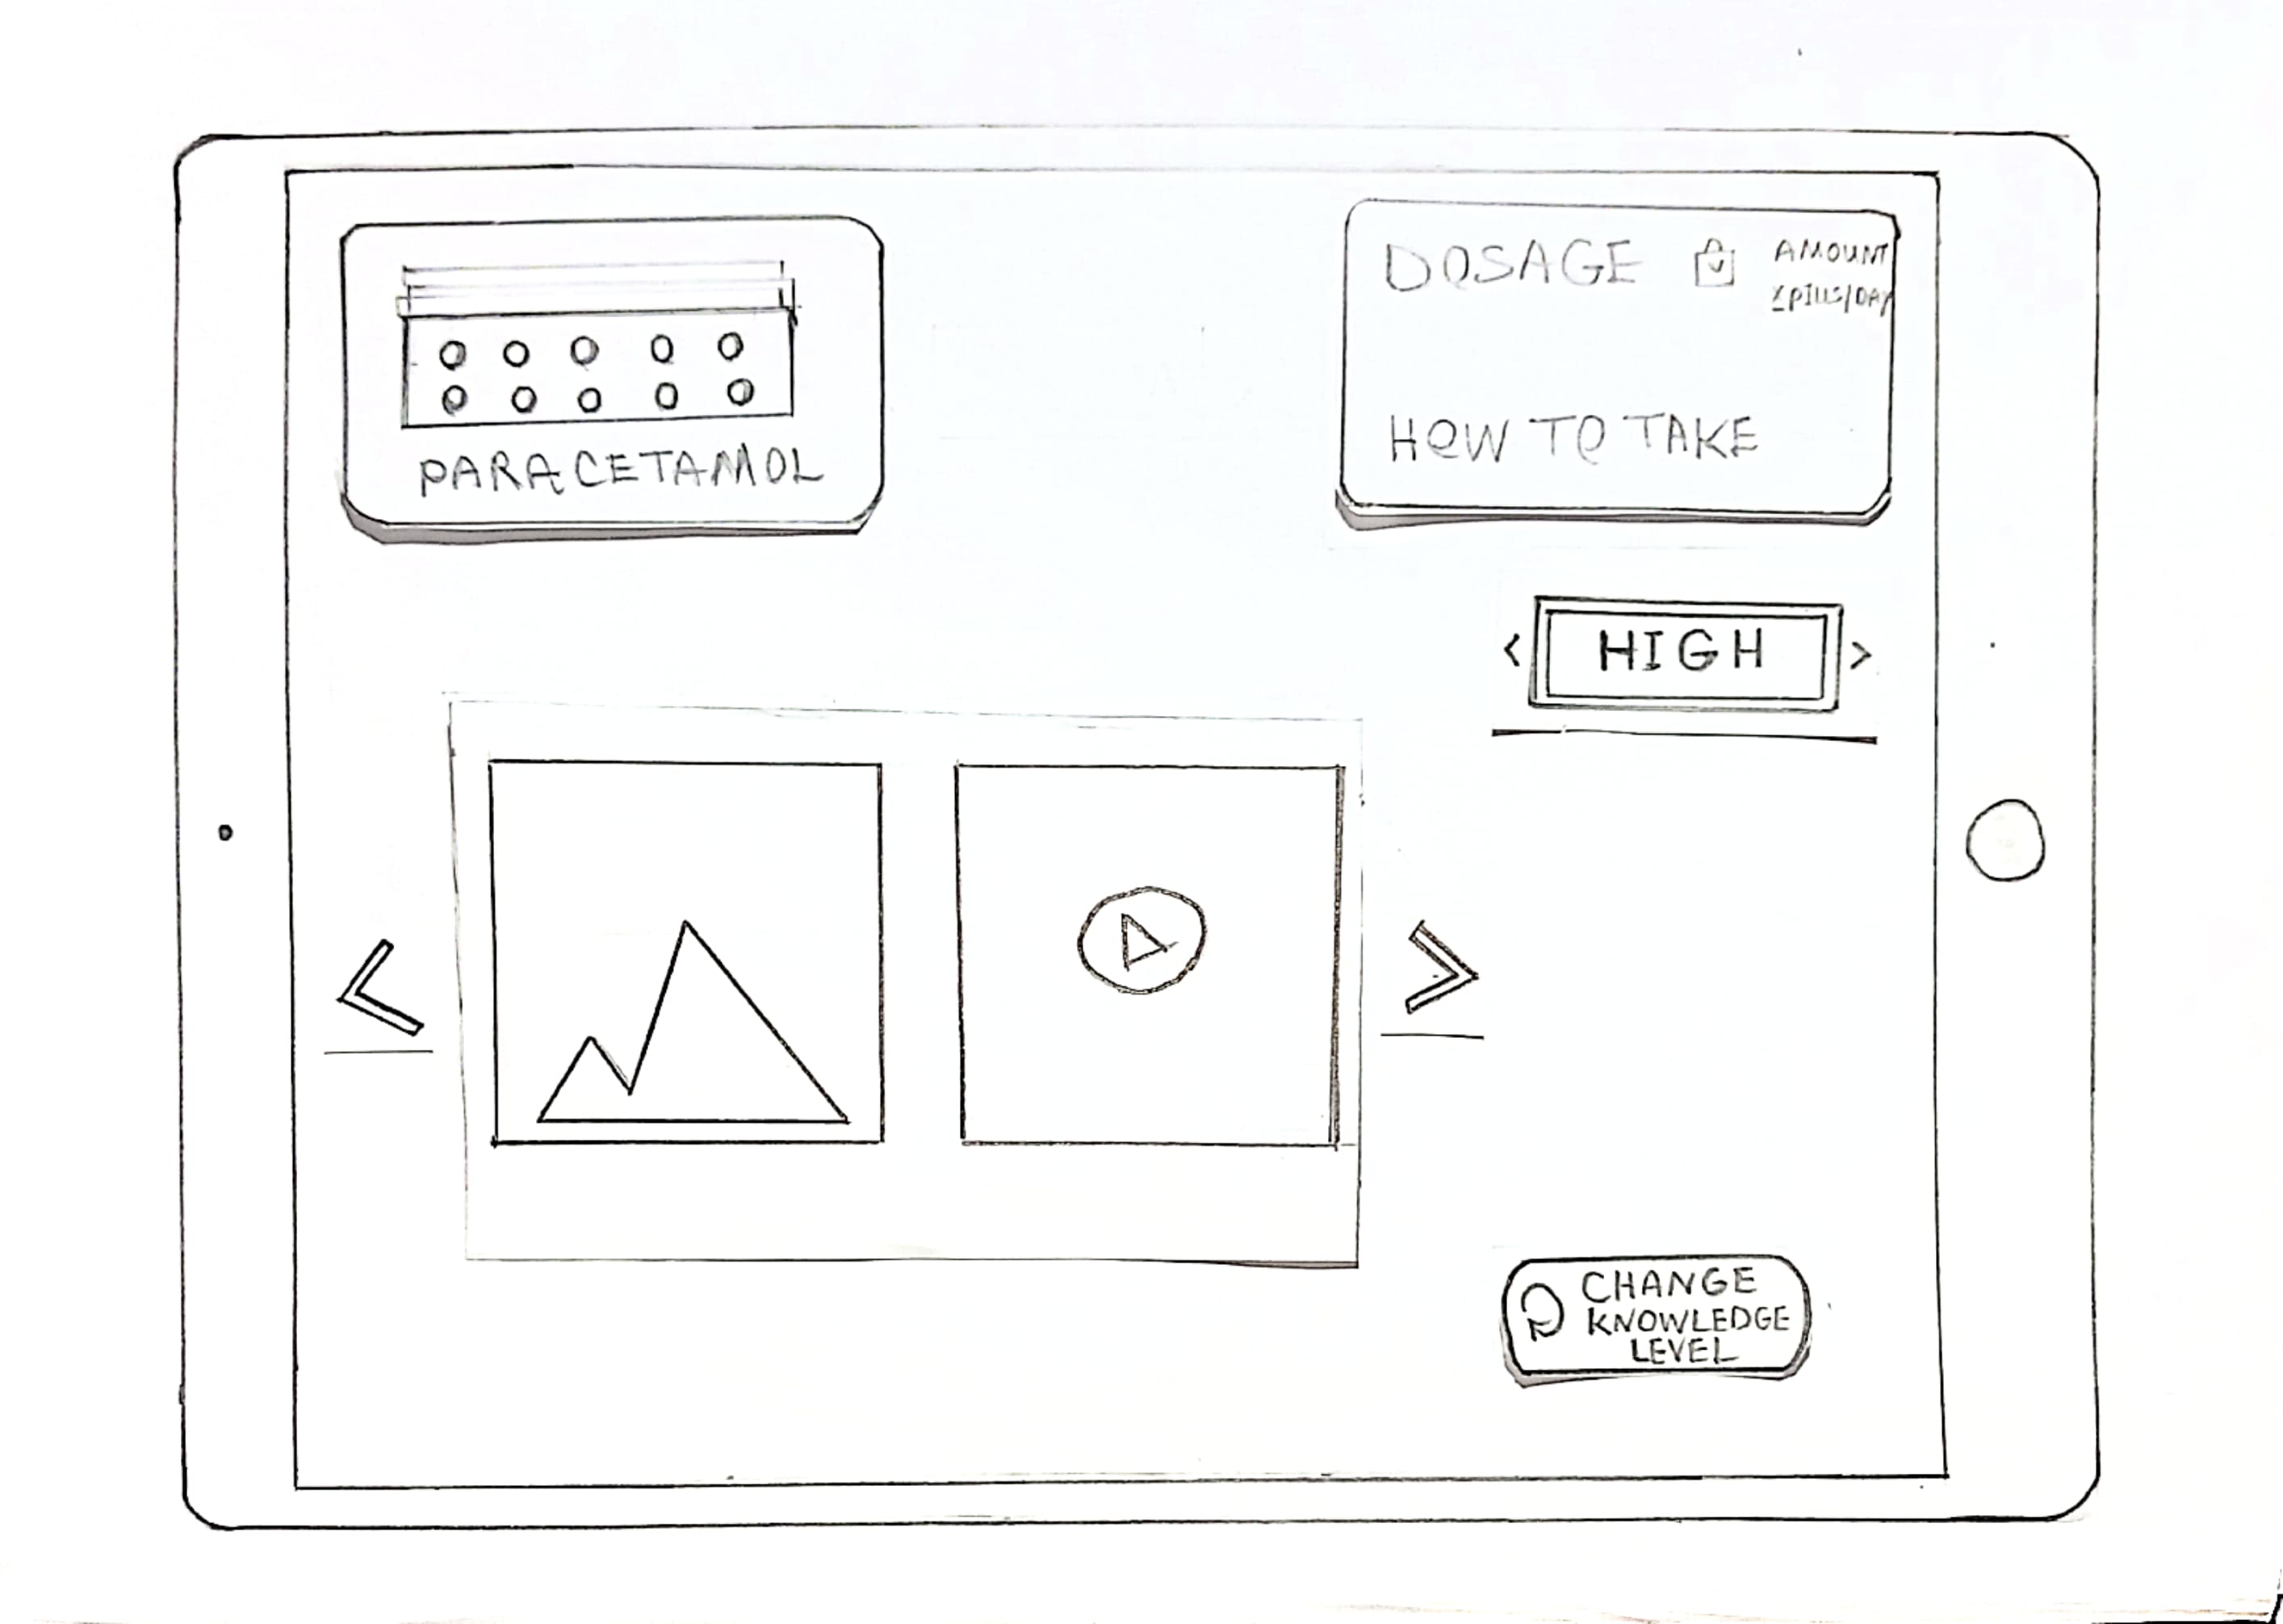 PARACETAMOL
DOSAGE
AMOUNT
HOW TO TAKE
< HIGH >
CHANGE
KNOWLEDGE
LEVEL